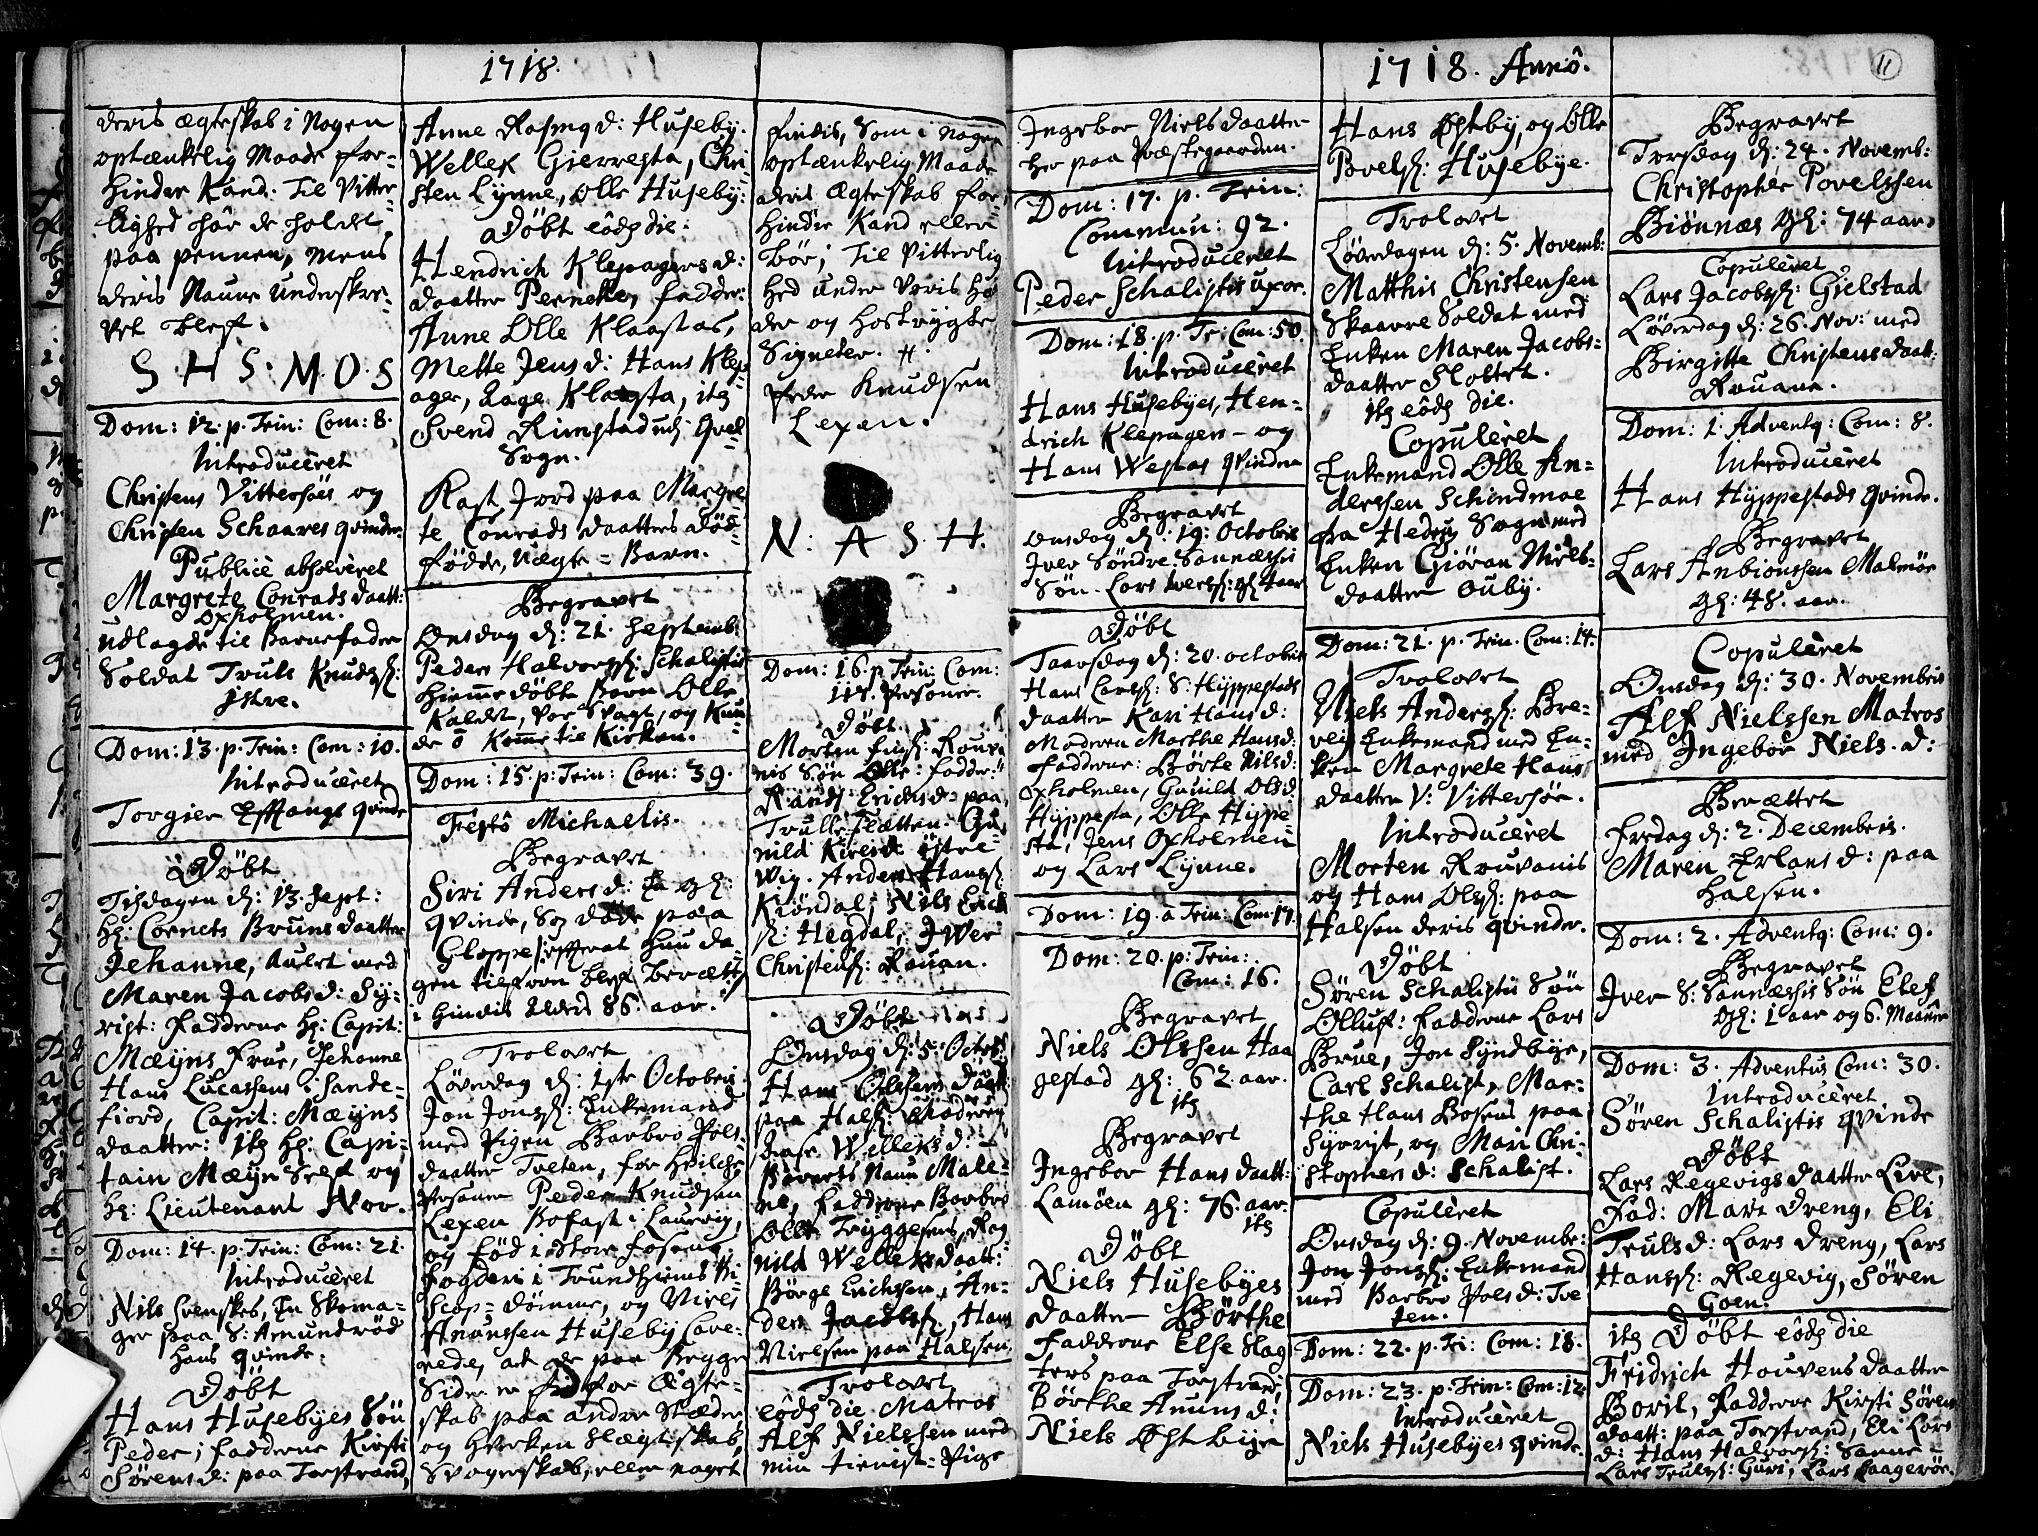 1718.
deris ægteskab i Nogen
optænkelig Maade for-
hinder Kand. Til Vitter-
lighed har de holdet
paa pennen, mens
deris Naune underskre-
vet blef.
S. H. S. M. O. S
Dom: 12. p. Trin: Com: 8.
Introduceret
Christens Vittersøes og
Christen Schaares qvinder
Publicè absolveret
Margrete Conrads daatt:
Oxholmen.
udlagde til Barnefader
Soldat Truls Knudss:
Istre.
Dom: 13. p. Trin: Com: 10.
Introduceret
Torgier qvinde
Døbt
Tisdagen d: 13. Sept:
Hr: Cornets Bruns daatter
Jehanne, med
Maren Jacobs d: Sy-
rist: Fadderne Hr: Capit:
Mæyns Frue, Jehanne
Hans Lucassens i Sande-
fiord, Capit: Mæyns
daatter: itz Hr: Capi-
tain Mæyn Self og
Hr: Lieutenant Nor.
Dom: 14. p. Trin: Com: 21.
Introduceret
Nils Svenskes, En Skoma-
ger paa S: Amundrød
hans qvinde.
Døbt
Hans Husebyes Søn
Peder; fadderne Kirsti
Sørens d: paa Torstrand,
Anne Rasmq d: Huseby.
Wellek Gierresta, Chri-
sten Lynne, Olle Huseby:
Døbt eôdz die:
Hendrich Klepagers d:
daatter Perneke, fadder:
Anne Olle Klaastas,
Mette Jens d: Hans Klep-
ager, Aage Klaasta, itz
Svend Rimstad udj Qvel-
Sogn.
Kast Jord paa Margre-
te Conrads daatters død-
fødde, Uægte-Barn.
Begravet
Onsdag d: 21. Septemb:
Peder Halvorss: Schalistis
Hiemme døbte Barn Olle
Kaldt, var Svagt, og Kun-
de ei Komme til Kirken.
Dom: 15. p: Trin: Com: 39.
Festô Michaelis.
Begravet
Siri Anders d: En gl:
qvinde, Som døde paa
Gloppe hun da-
gen tilforn blef berættet
i hindis Alders 86. aar.
Trolovet
Løverdag d: 1ste Octobris
Jon Jonss: Enkemand
med Pigen Barbro Pols-
daatter Tveten, for hvilche
Persaner Peder Knudsen
Lexen Bofast i Laurvig,
og fød i Store Fosens
Fogderi i Trundhiems Bi-
scop-dømme, og Niels
Anunssen Huseby Cave-
rede, at de paa begge
Sider er fri for Ægte-
skab paa andre Stæder
og hverken Slægtskab,
Svogerskab, eller noget
findis, som i nogen
optænkelig Maade
deris Ægteskab for-
hindre Kand eller
bør; Til Vitterlig-
hed under voris Hæ-
der og hostrygte
Signeter.
Peder Knudsen
Lexen.
N: A S. H.
Dom: 16. p. Trin: Com:
117. Personer.
Døbt
Morten Rouva-
nis Søn Olle: fadder:
Randj Erichs d: paa
Trulle flætten. Gu-
nild Istre-
vig. Anders Hanss:
Kiøndal, Nils Erich-
s: Hegdal, Iver
Christenss: Rouan.
Døbt
Onsdag d: 5. Octobr:
Hans Olssens daatt:
paa Hals: Moderen
Welleks d:
Barnets Naun Male-
ne, Fadderne Barbro
Olle Tryggesens, Rag-
nild Welleks daatt:
Børge Erichsen, An-
ders Jacobss: Hans
Nielsen paa Halsen.
Trolovet
eôdz die Matros
Alf Nielssen med
min tienist-Pige
1718. Annô.
11
Ingebor Niels daatter
her paa Præstegaarden.
Dom: 17. p. Trin:
Commun: 92.
Introduceret
Peder Schalistis uxor.
Dom: 18. p. Tr: Com: 50.
Introduceret
Hans Husebyes, Hen-
drich Klepagers - og
Hans Westas qvinder
Begravet
Onsdag d: 19. Octobris
Iver Søndre Sannæssis
Søn Lars Iverss: gl: 4 aar
Døbt
Taarsdag d: 20. octobris
Hans Larss: S: Hyppestads
daatter Kari Hans d:
Moderen Marthe Hans d:
Fadderne: Børte Nils d:
Oxholmen, Gunild Ols d:
Hyppesta, Olle Hyppe-
sta, Jens Oxholmen
og Lars Lynne.
Dom: 19. a Trin: Com: 17.
Dom: 20. p. Trin:
Com: 16.
Begravet
Niels Olssen Haa-
gestad gl: 62. aar.
itz
Begravet
Ingebor Hans daatt:
Lamøen gl: 76. aar.
itz
Døbt
Niels Husebyes
daatter Børthe
Fadderne Else Slag-
ters paa Torstrand,
Børthe Anuns d:
Niels Østbye
Hans Østby, og Olle
Povels: Husebye.
Trolovet
Løverdagen d: 5. Novemb:
Matthis Christensen
Skaarre Soldat med
Enken Maren Jacobs-
daatter Slottet.
itz eôdz die.
Copulèret
Enkemand Olle An-
derssen Schindmoe
fra Hedrum Sogn med
Enken Giøran Niels-
daatter Ouby.
Dom: 21. p. Trin. Com: 14.
Trolovet
Niels Anderss: Bre-
vej Enkemand med En-
ken Margrete Hans
daatter V: Vittersøe.
Introduceret
Morten Rouvanis
og Hans Olss: paa
Halsen deris qvinder.
Døbt
Søren Schalistis Søn
Olluf: Fadderne Lars
Brue, Jon Syndbye,
Carl Schalist, Mar-
the Hans Bosens paa
Syvryst, og Mari Chri-
stophers d: Schalist.
Copulèret
Onsdag d: 9. Novembr:
Jon Jonss: Enkemand
med Barbro Pols d: Tve-
ten.
Dom: 22. p. Tri: Com: 18.
Dom: 23. p. Trin: Com: 12.
Introduceret
Niels Husebyes qvinde.
Begravet
Torsdag d: 24. Novemb:
Christopher Povelssen
Biønnæs gl: 74 aar.
Copuleret
Lars Jacobss: Gielstad
Løverdag d: 26. Nov: med
Birgitte Christens daatt:
Rouane.
Dom: 1. Adventq: Com: 8.
Introduceret
Hans Hyppestads qvinde.
Begravet
Lars Anbiønssen Malmøe
gl: 48. aar.
Copulèret
Onsdag d: 30. Novembris
Alf Nielssen Matros
med Ingebor Niels. d:
Berættet
fredag d: 2. Decembris.
Maren Erlans d: paa
Halsen.
Dom: 2. Adventq: Com: 9.
Begravet
Iver S: Sannæssis Søn Elef
gl: 1 aar og 6. Maaner
Dom: 3. Adventus Com: 30.
Introduceret
Søren Schalistis qvinde
Døbt
Lars Regevigs daatter Live,
Fad: Mari Dreng, Eli
Truls d: Lars Dreng, Lars
Hanss: Regevig, Søren
Goen.
itz Døbt eôdz die
Fridrich Houvens daatter
Boril, Fadderne Kirsti Sørens
daatt: paa Torstrand, Eli Lars
d: Hans Halvorss: Sanne-
Lars Trulss: Guri, Lars Laagerøe.